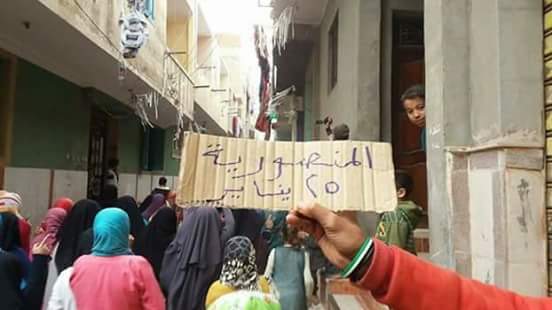 المنصورية
٢٥ يناير